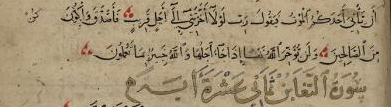 أَن يَأْتِيَ أَحَدَكُمُ الْمَوْتُ فَيَقُولَ رَبِّ لَوْلَا أَخَّرْتَنِي إِلَى أَجَلٍ قَرِيبٍ فَأَصَّدَّقَ وَأَكُونَ
مِنَ الصَّالِحِينَ وَلَن يُؤَخِّرَ اللَّهُ نَفْسًا إِذَا جَاءَ أَجَلُهَا وَاللَّهُ خَبِيرٌ بِمَا تَعْمَلُونَ
سُورَةُ التَّغَابُنِ ثَمَانِي عَشْرَةَ آيَةً